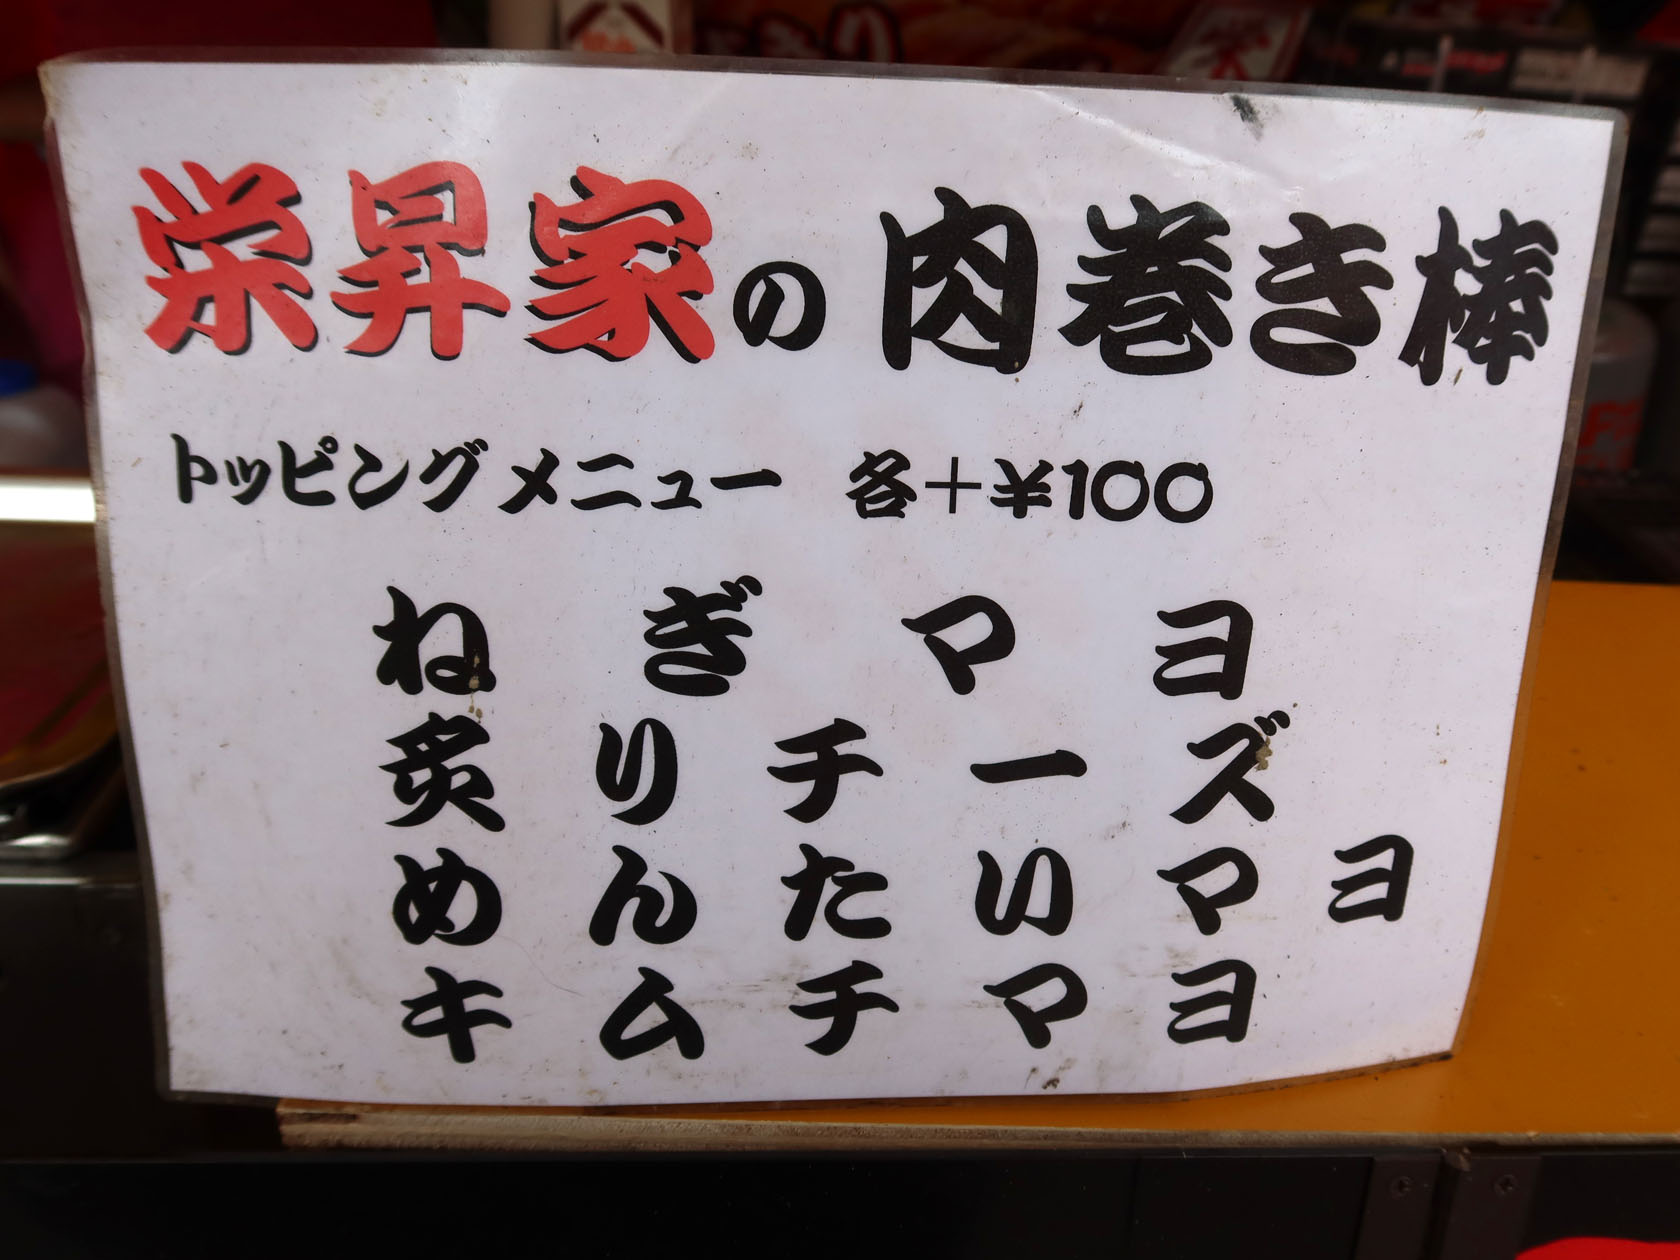 栄昇家の肉巻き棒
トッピングメニュー 各+¥100
ねぎマヨ
炙りチーズ
めんたいマヨ
キムチマヨ